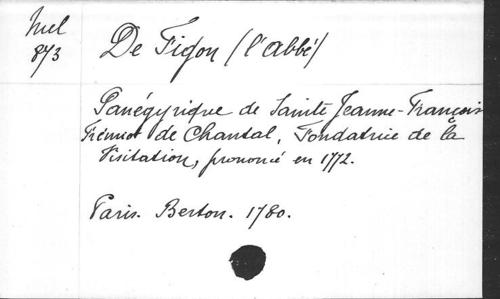 Mel
873
De Figon (l'abbé)
Panégyrique de Sainte Jeanne-François
Frémiot de Chantal, Fondatrice de la
Visitation, prononcé en 1772.
Paris. Berton. 1780.